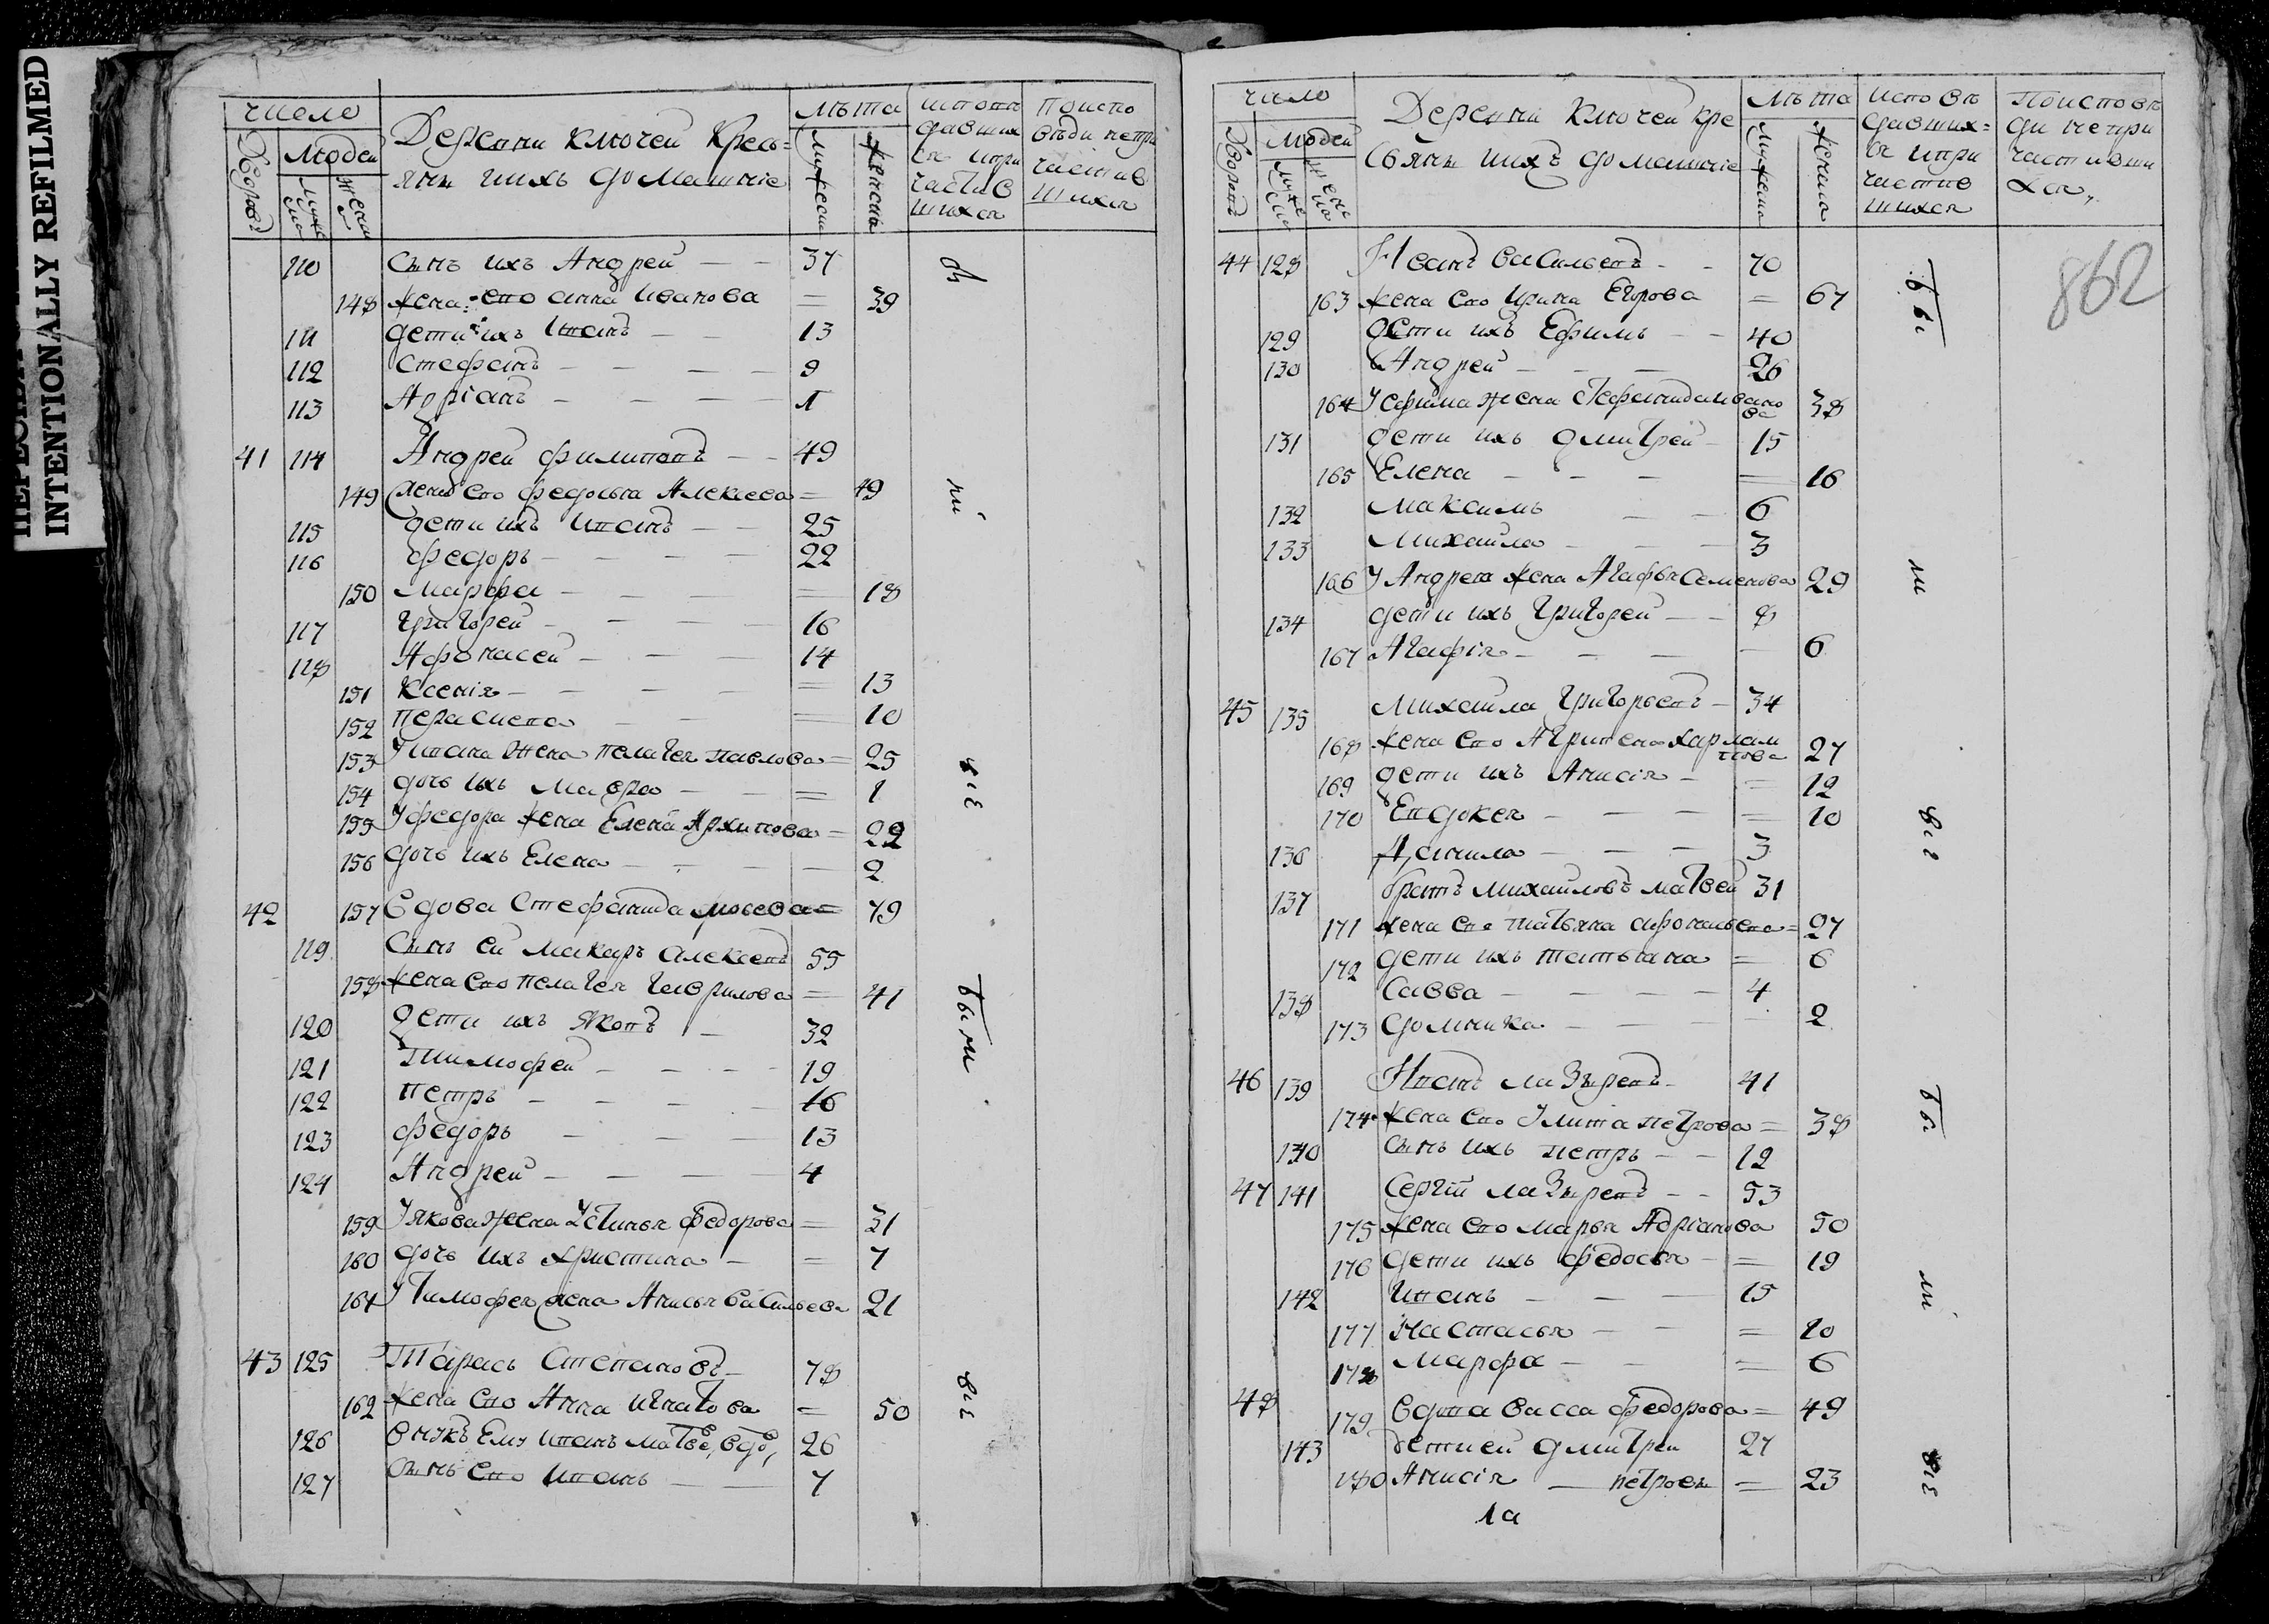 INTENTIONALLY REFILMED
число
Дворовъ
Людей
Мужеска
Женска
Деревни Ключей Кресь=
янъ ихъ домашніе
лѣта
мужеска
женска
испове
давших
ся и при
частив
шихся
По испо
вѣди непри
частив
шихся
110 Сынъ ихъ Андрей — — 37
148 жена ево анна Иванова = 39
111 дети ихъ Иванъ — — 13
112 Стефанъ — — — — 9
113 Адріанъ — — — —
41 114 Андрей филиповъ — — 49
149 жена ево федосья Алексеева = 49
115 дети ихъ Иванъ — — 25
116 федоръ — — — — 22
150 Марфа — — — — = 18
117 Григорей — — — — 16
118 Афонасей — — — 14
151 Ксенія — — — — = 13
152 Параскева — — = 10
153 У ивана жена пелагея павлова = 25
154 дочь ихъ Мавра — — = 1
155 У федора жена Елена Архипова = 22
156 дочь ихъ Елена — — — 2
42 157 Вдова Стефанида =  79
119 Сынъ ей Макаръ алексеевъ 55
158 жена ево пелагея гаврилова = 41
120 Дети ихъ Яковъ — 32
121 Тимофей — — — 19
122 Петръ — — — — 16
123 федоръ — — — 13
124 Андрей — — — — 4
159 У якова жена Устинья федорова = 31
160 дочь ихъ христина — = 7
161 У Тимофея жена Анисья васильева 21
43 125 Тарасъ Степановъ — 78
162 жена ево Анна игнатова = 50
126 Внукъ Ему иванъ матве, вдо, 26
127 Сынъ ево иванъ — — 7
число
Дворовъ
Людей
Мужеска
Женска
Деревни Ключей кре
сьянъ ихъ домашніе
лѣта
Мужеска
Женска
Исповѣ
давших=
ся и при
частив
шихся
По исповѣ
ди непри
частивши
хся,
862
44 128 Иванъ васильевъ — — 70
163 жена ево Ирина Егорова = 67
129 дети ихъ Ефимъ — — 40
130 Андрей — — — 26
164 У ефима жена Стефанида ивано
ва 38
131 дети ихъ дмитрей — 15
165 Елена — — — — 16
132 Максимъ — — 6
133 Михаила — — — 3
166 У Андрея жена Агафья Семенова 29
134 дети ихъ Григорей — — 8
167 Агафія — — — — 6
45 135 Михаила Григорьевъ — 34
168 жена ево Агрипена харлам
пова 27
169 дети ихъ Анисія — = 12
170 Евдокея — — — = 10
136 Данила — — — 3
137 братъ михаиловъ матвей 31
171 жена ево татьяна афонасьева = 27
172 дети ихъ татьяна = 6
138 Савва — — — — 4
173 домника — — — 2
46 139 Иванъ лазаревъ — 41
174 жена ево Улита петрова = 38
140 сынъ ихъ петръ — — 12
47 141 Сергій лазаревъ — — 53
175 жена ево марья Адріанова 50
176 дети ихъ федосья — = 19
142 Иванъ — — — 15
177 Настасья — — = 10
178 Марфа — — = 6
48 179 Вдова васса федорова = 49
143 дети ей дмитреи 27
180 Анисія — петровы = 23